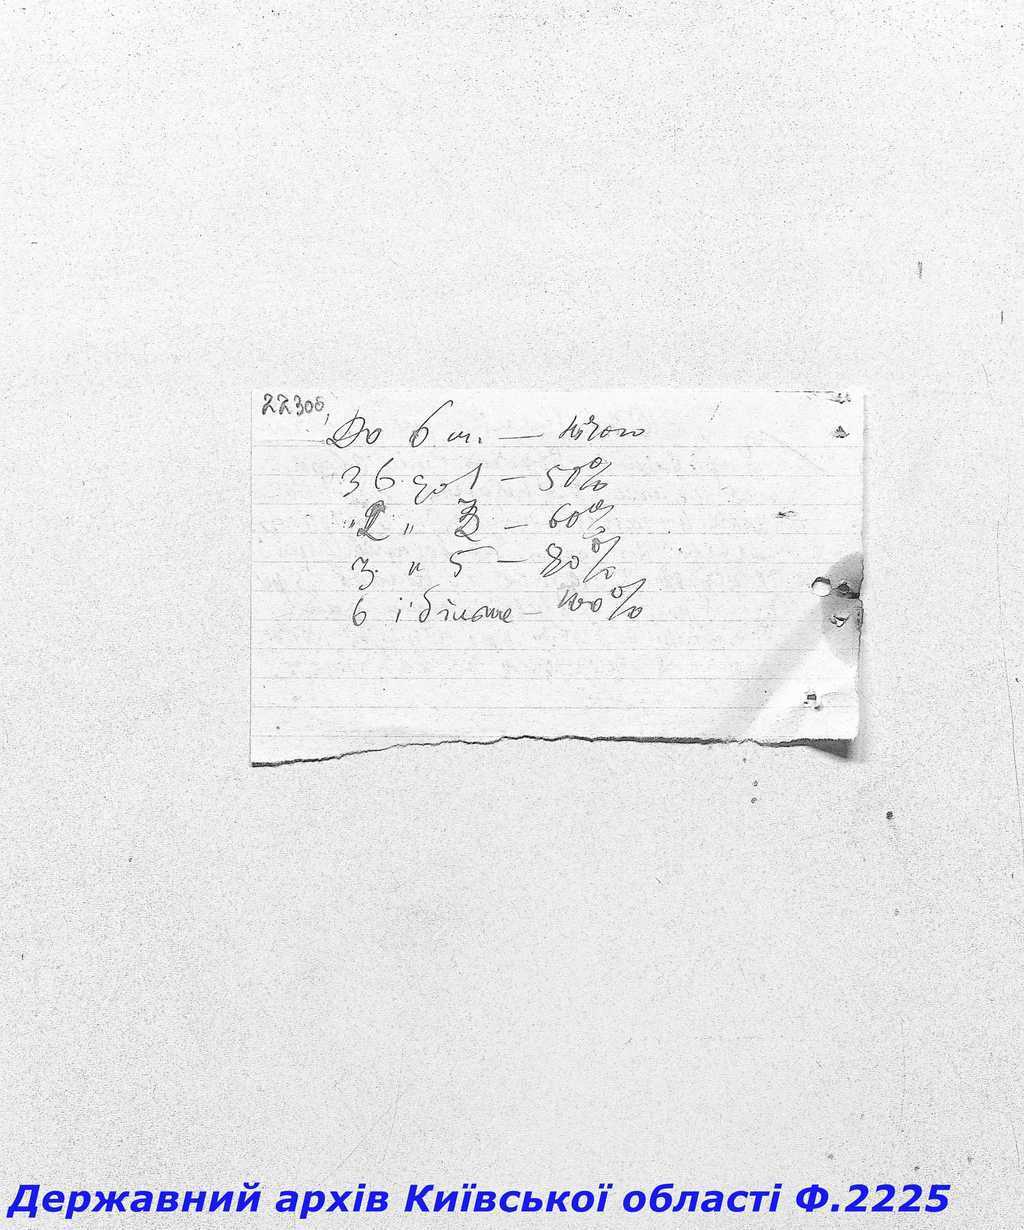 22зоб,
До 6 м. — нічого
З 6 до 1 — 50%
„ 2 „ 3 — 60%
3 „ 5 — 80%
6 і більше — 100%
Державний архів Київської області Ф.2225